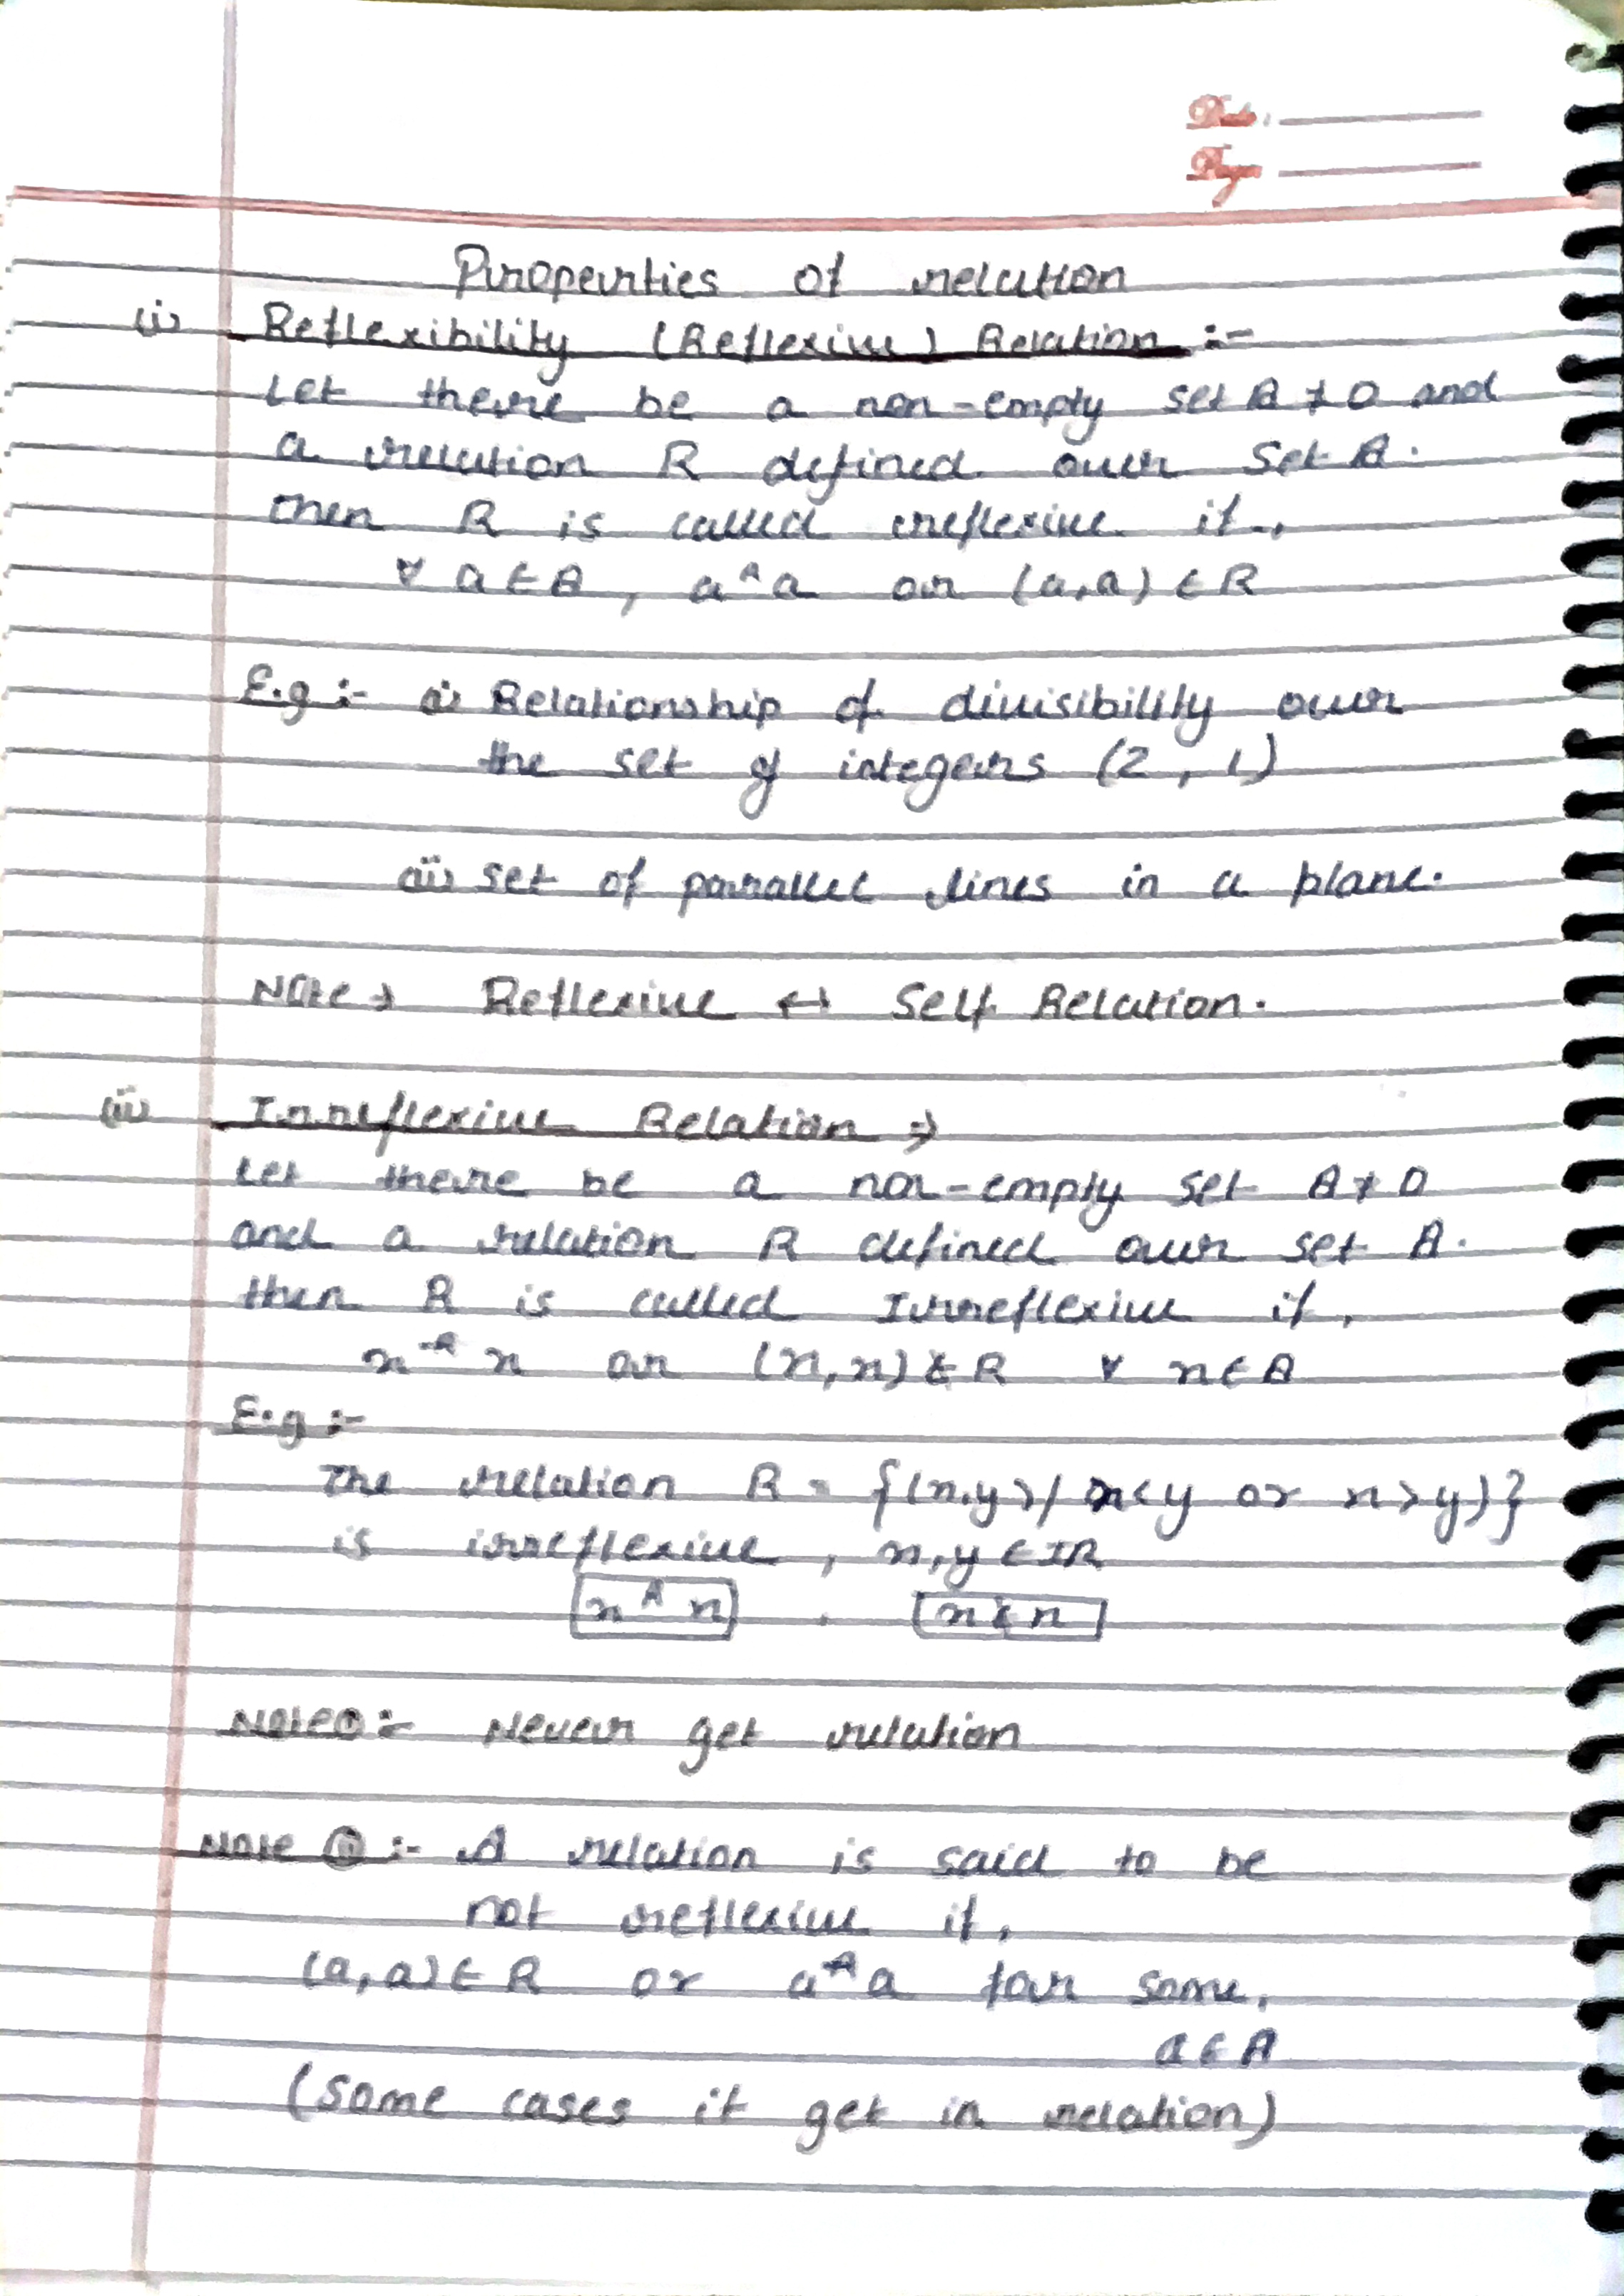 Date:
Page
Properties of relation
(i) Reflexibility (Reflexive) Relation :-
Let there be a non-empty set A ≠ 0 and
a relation R defined over Set A.
Then R is called reflexive if.,
∀ a ∈ A, a ᴿ a or (a,a) ∈ R
E.g :- (i) Relationship of divisibility over
the set of integers (2, 1)
(ii) set of parallel lines in a plane.
Note → Reflexive ↔ Self Relation.
(ii) Irreflexive Relation ⇒
Let there be a non-empty set A ≠ 0
and a relation R defined over set A.
then R is called Irreflexive if,
x ᴿ̶ x or (x,x) ∉ R ∀ x ∈ A
E.g :-
The relation R = {(x,y)/ x<y or x>y)}
is irreflexive, x,y ∈ IR
x ᴿ x , x ≮ x
Note① :- Never get relation
Note ⑪ :- A relation is said to be
not reflexive if,
(a,a) ∈ R or a ᴿ̶ a for some,
a ∈ A
(some cases it get in relation)